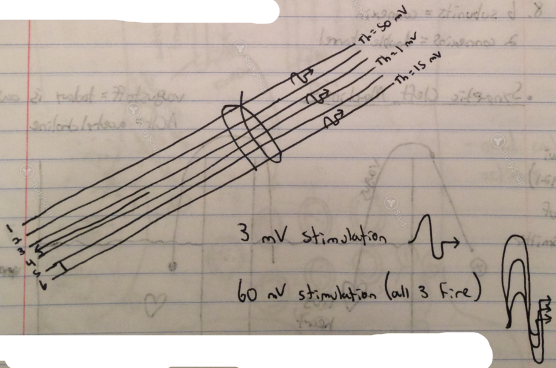 Th=50 mV
Th=1 mV
Th=15 mV
1
2
3
4
5
6
3 mV stimulation
60 mV stimulation (all 3 fire)